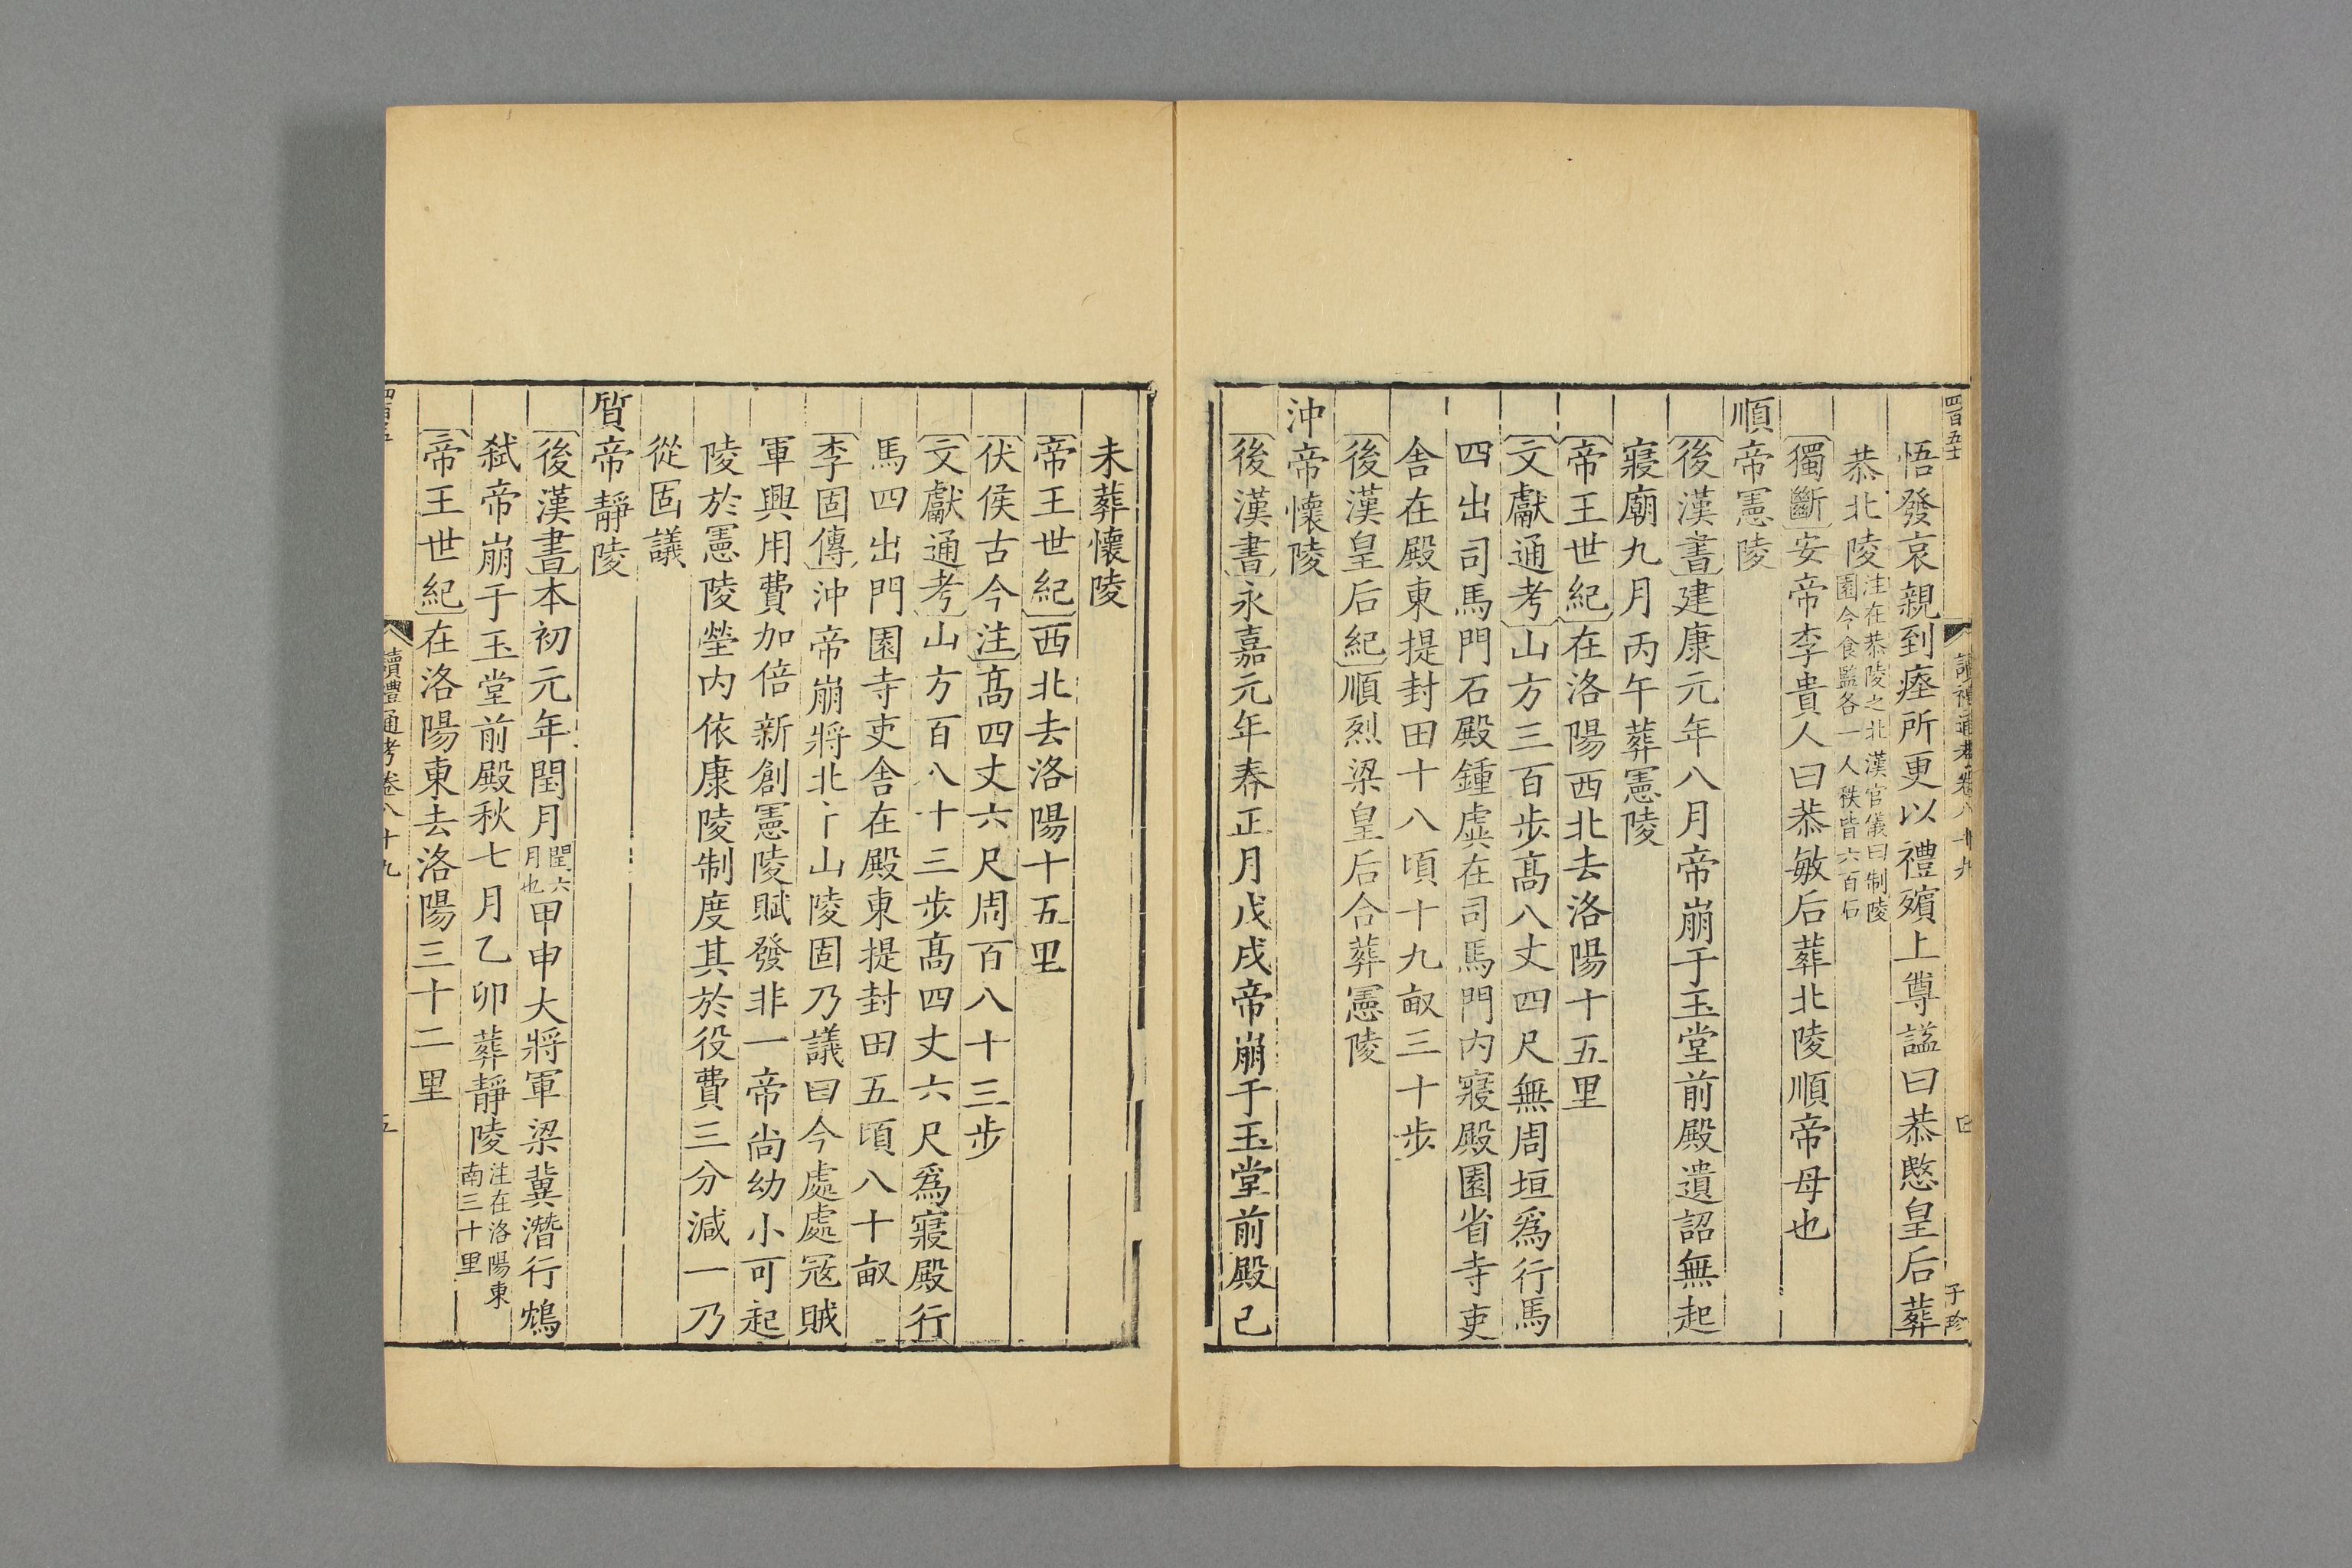 四百五十
讀禮通考卷八十九
子珍
悟發哀親到瘞所更以禮殯上尊諡曰恭愍皇后葬
恭北陵注在恭陵之北漢官儀曰制陵
園令食監各一人秩皆六百石
獨斷安帝李貴人曰恭敏后葬北陵順帝母也
順帝憲陵
後漢書建康元年八月帝崩于玉堂前殿遺詔無起
寢廟九月丙午葬憲陵
帝王世紀在洛陽西北去洛陽十五里
文獻通考山方三百步高八丈四尺無周垣爲行馬
四出司馬門石殿鍾虡在司馬門內寢殿園省寺吏
舍在殿東提封田十八頃十九畝三十步
後漢皇后紀順烈梁皇后合葬憲陵
沖帝懷陵
後漢書永嘉元年春正月戊戌帝崩于玉堂前殿己
未葬懷陵
帝王世紀西北去洛陽十五里
伏侯古今注高四丈六尺周百八十三步
文獻通考山方百八十三步高四丈六尺爲寢殿行
馬四出門園寺吏舍在殿東提封田五頃八十畝
李固傳沖帝崩將北卜山陵固乃議曰今處處寇賊
軍興用費加倍新創憲陵賦發非一帝尚幼小可起
陵於憲陵塋內依康陵制度其於役費三分減一乃
從固議
質帝靜陵
後漢書本初元年閏月閏六
月也甲申大將軍梁冀潛行鴆
弒帝崩于玉堂前殿秋七月乙卯葬靜陵注在洛陽東
南三十里
帝王世紀在洛陽東去洛陽三十二里
讀禮通考卷八十九
五